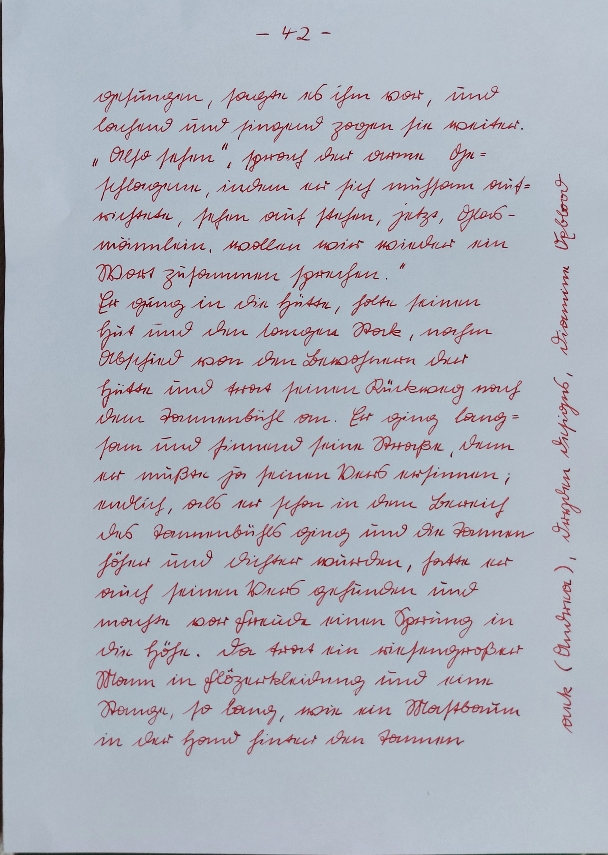 - 42 -
gesungen, sagte es ihm vor, und
lachend und singend zogen sie weiter.
„Also sehen", sprach der arme Ge=
schlagene, indem er sich mühsam auf=
richtete, sehen auf stehen, jetzt, Glas-
männlein, wollen wir wieder ein
Wort zusammen sprechen."
Er ging in die Hütte, holte seinen
Hut und den langen Stock, nahm
Abschied von den Bewohnern der
Hütte und trat seinen Rückweg nach
dem Tannenbühl an. Er ging lang=
sam und sinnend seine Straße, denn
er mußte ja seinen Vers ersinnen;
endlich, als er schon in dem Bereich
des Tannenbühls ging und die Tannen
höher und dichter wurden, hatte er
auch seinen Vers gefunden und
machte vor Freude einen Sprung in
die Höhe. Da trat ein riesengroßer
Mann in Flözerkleidung und eine
Stange, so lang, wie ein Mastbaum
in der Hand hinter den Tannen
ark (Andrea), dryden designs, diamine